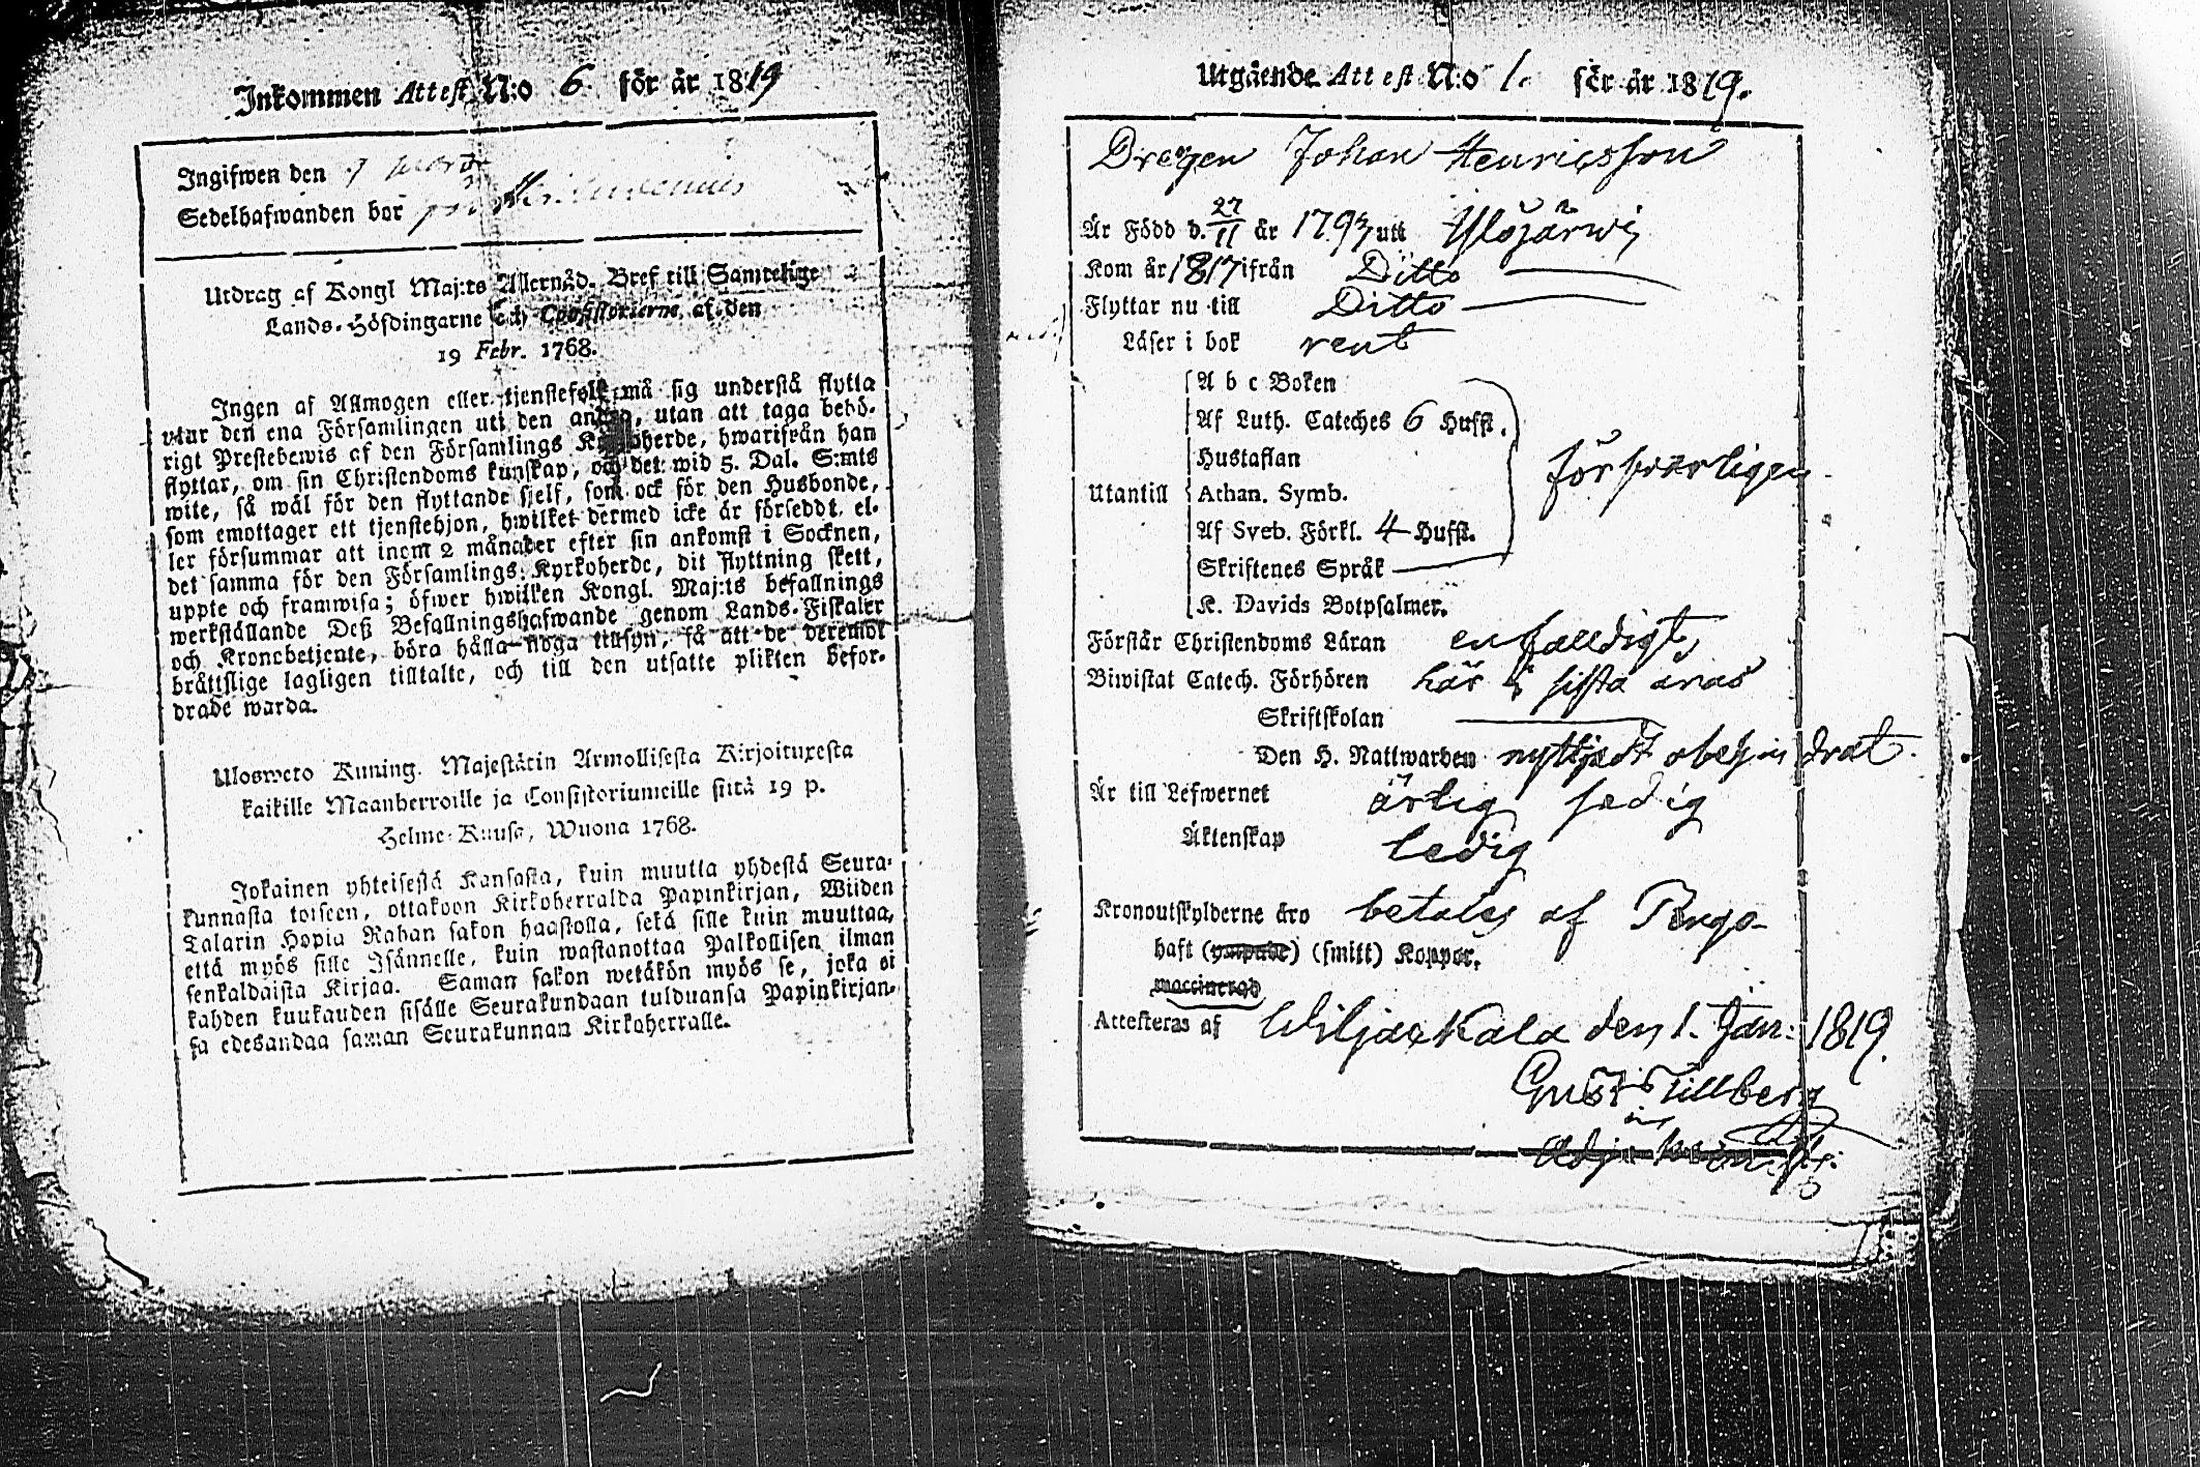 Inkommen Attest N:o 6. för år 1819
Ingifwen den 7
Sedelhafwanden bor på
Utdrag af Kongl Maj:ts Allernåd. Bref till Samtelige
Lands-Höfdingarne och Consistorierne, af den
19 Febr. 1768.
Ingen af Allmogen eller tjenstefolk må sig understå flytta
utur den ena Församlingen uti den andra, utan att taga behö-
rigt Prestebewis af den Församlings Kyrkoherde, hwarifrån han
flyttar, om sin Christendoms kunskap, och det wid 5. Dal. S:mts
wite, så wäl för den flyttande sjelf, som ock för den Husbonde,
som emottager ett tjenstehjon, hwilket dermed icke är förseddt, el-
ler försummar att inom 2 månader efter sin ankomst i Socknen,
det samma för den Församlings Kyrkoherde, dit flyttning skett,
uppte och framwisa; öfwer hwilken Kongl. Maj:ts befallnings
werkställande Deß Befallningshafwande genom Lands-Fiskaler
och Kronobetjente, böra hålla noga tillsyn, så att de deremot
bråttslige lagligen tilltalte, och till den utsatte plikten befor-
drade warda.
Ulosweto Kuning. Majestätin Armollisesta Kirjoituxesta
kaikille Maanherroille ja Consistoriumeille siitä 19 p.
Helme-Kuusa, Wuona 1768.
Jokainen yhteisestä Kansasta, kuin muutta yhdestä Seura-
kunnasta toiseen, ottakoon Kirkoherralda Papinkirjan, Wiiden
Talarin Hopia Rahan sakon haastolla, sekä sille kuin muuttaa,
että myös sille Isännelle, kuin wastanottaa Palkollisen ilman
senkaldaista Kirjaa. Saman sakon wetäkön myös se, joka ei
kahden kuukauden sisälle Seurakundaan tulduansa Papinkirjan-
sa edesandaa saman Seurakunnan Kirkoherralle.
Utgående Attest N:o 1. för år 1819.
Drengen Johan Henricsson
Är Född d. 27/11 år 1793 utt Ylöjärwi
Kom år 1817 ifrån Ditto
Flyttar nu till Ditto
Läser i bok rent
A b c Boken
Af Luth. Cateches 6 Hufst.
Hustaflan
försvarligen
Utantill Athan. Symb.
Af Sveb. Förkl. 4 Hufst.
Skriftenes Språk
K. Davids Botpsalmer.
Förstår Christendoms Läran enfalldigt
Biwistat Catech. Förhören här i sista åras
Skriftskolan
Den H. Nattwarden nyttjadt obehindrat
Är till Lefwernet ärlig sedig
Äktenskap ledig
Kronoutskylderne äro betales af
haft (smitt) Koppor.
vaccinerad
Attesteras af Wiljakkala den 1. Jan: 1819.
Gust: Tillberg